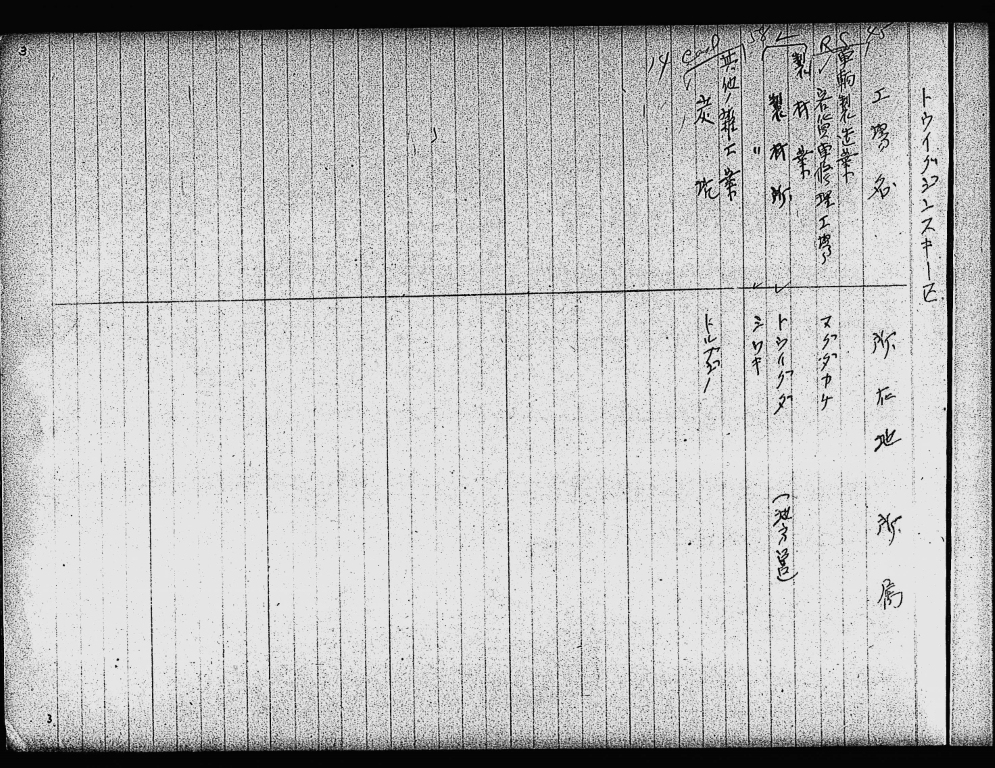 トウイグジンスキー区
工場名 所在地 所属
45
車輌製造業
RS
貨車修理工場 マグダカケ
58 L
製材業
製材所 トウイグダ (地方営)
〃 シワキ
其他ノ雑工業
Coal
14
炭坑 トルブジノ
3
3